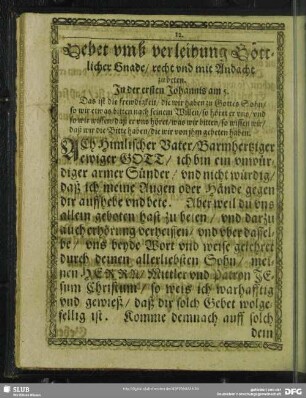 12.
Gebet vmb verleihung Gött-
licher Gnade / recht vnd mit Andacht
zu beten.
In der ersten Johannis am 5.
Das ist die frewdigkeit / die wir haben zu Gottes Sohn /
so wir etwas bitten nach seinem Willen / so höret er vns / vnd
so wir wissen / daß er vns höret / was wir bitten / so wissen wir /
daß wir die Bitte haben / die wir von jhm gebeten haben.
ACh Himlischer Vater / Barmhertziger
ewiger GOTT / ich bin ein vnwür-
diger armer Sünder / vnd nicht würdig /
daß ich meine Augen oder Hände gegen
dir auffhebe vnd bete. Aber weil du vns
allen geboten hast zu beten / vnd darzu
auch erhörung verheissen / vnd vber dassel-
be / vns beyde Wort vnd weise gelehret
durch deinen allerliebsten Sohn / mei-
nen HERRN / Mittler vnd Patron JE-
sum Christum / so weis ich warhafftig
vnd gewieß / daß dir solch Gebet wolge-
fellig ist. Komme demnach auff solch
dein
SLUB
DFG